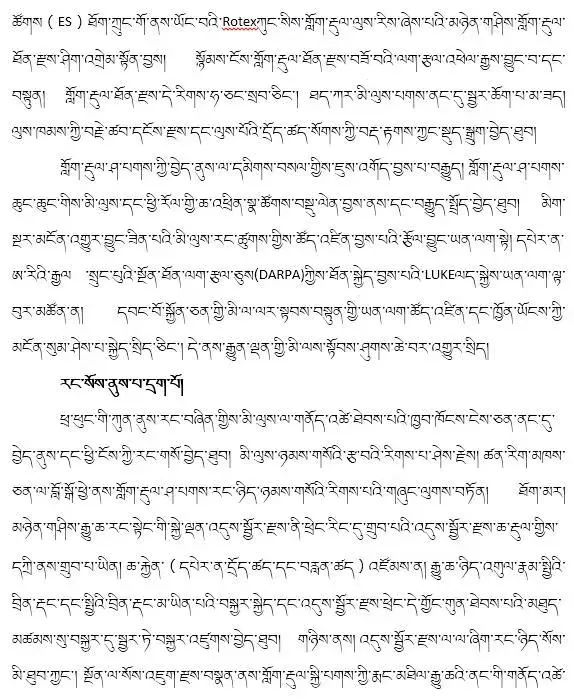 ཚོགས ( ES ) ཐོག་ཀྲུང་གོ་ནས་ཡོང་བའི་Rotexཀུང་སིས་གློག་རྡུལ་ལུས་རིས་ཞེས་པའི་མཉེན་གཤིས་གློག་རྡུལ་
ཐོན་རྫས་ཤིག་འགྲེམ་སྟོན་བྱས། སྙོམས་ངོས་གློག་རྡུལ་ཐོན་རྫས་བཟོ་བའི་ལག་རྩལ་འཕེལ་རྒྱས་བྱུང་བ་དང་
བསྟུན། གློག་རྡུལ་ཐོན་རྫས་དེ་རིགས་ཧ་ཅང་སྲབ་ཅིང་། ཐད་ཀར་མི་ལུས་པགས་ནང་དུ་སྦྱར་ཆོག་པ་མ་ཟད།
ལུས་ཁམས་ཀྱི་བརྗེ་ཚབ་དངོས་རྫས་དང་ལུས་པོའི་དྲོད་ཚད་སོགས་ཀྱི་བརྡ་རྟགས་ཀྱང་སྡུད་སྒྲུག་བྱེད་ཐུབ།
གློག་རྡུལ་ཤ་པགས་ཀྱི་བྱེད་ནུས་ལ་དམིགས་བསལ་གྱིས་ཇུས་འགོད་བྱས་པ་བརྒྱུད། གློག་རྡུལ་ཤ་པགས་
ཆུང་ཆུང་གིས་མི་ལུས་དང་ཕྱི་རོལ་གྱི་ཆ་འཕྲིན་སྣ་ཚོགས་བསྡུ་ལེན་བྱས་ནས་དང་བརྒྱུད་སྤྲོད་བྱེད་ཐུབ། མིག་
སྔར་མངོན་འགྱུར་བྱུང་ཟིན་པའི་མི་ལུས་རང་ཚུགས་གྱིས་ཚོད་འཛིན་བྱས་པའི་རྩོལ་བྱུང་ཡན་ལག་སྟེ། དཔེར་ན་
ཨ་རིའི་རྒྱལ སྲུང་པུའི་སྔོན་ཐོན་ལག་རྩལ་ཅུས(DARPA)ཀྱིས་ཐོན་སྐྱེད་བྱས་པའི་LUKEལད་སྐྱེས་ཡན་ལག་ལྟ་
བུར་མཚོན་ན། དབང་པོ་སྐྱོན་ཅན་གྱི་མི་ལ་ལར་སྟབས་བསྟུན་གྱི་ཡན་ལག་ཚོད་འཛིན་དང་ཁྱོན་ཡོངས་ཀྱི་
མངོན་སུམ་ཤེས་པ་སྐྱེད་སྲིད་ཅིང་། དེ་ནས་རྒྱུན་ལྡན་གྱི་མི་ལས་སྟོབས་ཤུགས་ཆེ་བར་འགྱུར་སྲིད།
རང་སོས་ནུས་པ་དྲག་པོ།
ཕྲ་ཕུང་གི་ཀུན་ནུས་རང་བཞིན་གྱིས་མི་ལུས་ལ་གནོད་འཚེ་ཐེབས་པའི་ཁྱབ་ཁོངས་ངེས་ཅན་ནང་དུ་
བྱེད་ནུས་དང་ཕྱི་ངོས་ཀྱི་རང་གསོ་བྱེད་ཐུབ། མི་ལུས་ཉམས་གསོའི་རྩ་བའི་རིགས་པ་ཤེས་རྗེས། ཚན་རིག་མཁས་
ཅན་ལ་བློ་སྒོ་ཕྱེ་ནས་གློག་རྡུལ་ཤ་པགས་རང་ཉིད་ཉམས་གསོའི་རིགས་པའི་གཞུང་ལུགས་བཏོན། ཐོག་མར།
མཉེན་གཤིས་རྒྱུ་ཆ་རང་སྟེང་གི་སྐྱེ་ལྡན་འདུས་སྦྱོར་རྫས་ནི་ཕྲེང་རིང་དུ་གྲུབ་པའི་འདུས་སྦྱོར་རྫས་ཆ་རྡུལ་གྱིས་
དཀྲི་ནས་གྲུབ་པ་ཡིན། ཆ་རྐྱེན་ ( དཔེར་ན་དྲོད་ཚད་དང་བརླན་ཚད ) འཛོམས་ན། རྒྱུ་ཆ་ཉིད་འགུལ་རྣམ་སྤྱིའི་
བྲིན་རྡང་དང་སྤྱིའི་བྲིན་རྡང་མ་ཡིན་པའི་བསྐྱར་སྐྱེད་དང་འདུས་སྦྱོར་རྫས་ཕྲེང་དེ་གྱོང་གུན་ཐེབས་པའི་མཐུད་
མཚམས་སུ་བསྐྱར་དུ་སྦྱར་ཏེ་བསྐྱར་འཛུགས་བྱེད་ཐུབ། གཉིས་ནས། འདུས་སྦྱོར་རྫས་ལ་ལ་ཞིག་རང་ཉིད་སོས་
མི་ཐུབ་ཀྱང་། སྔོན་ལ་སོས་འཇུག་རྫས་བསྣན་ནས་གློག་རྡུལ་སྐྱི་པགས་ཀྱི་རྨང་མཐིལ་རྒྱུ་ཆའི་ནང་གི་གནོད་འཚེ་